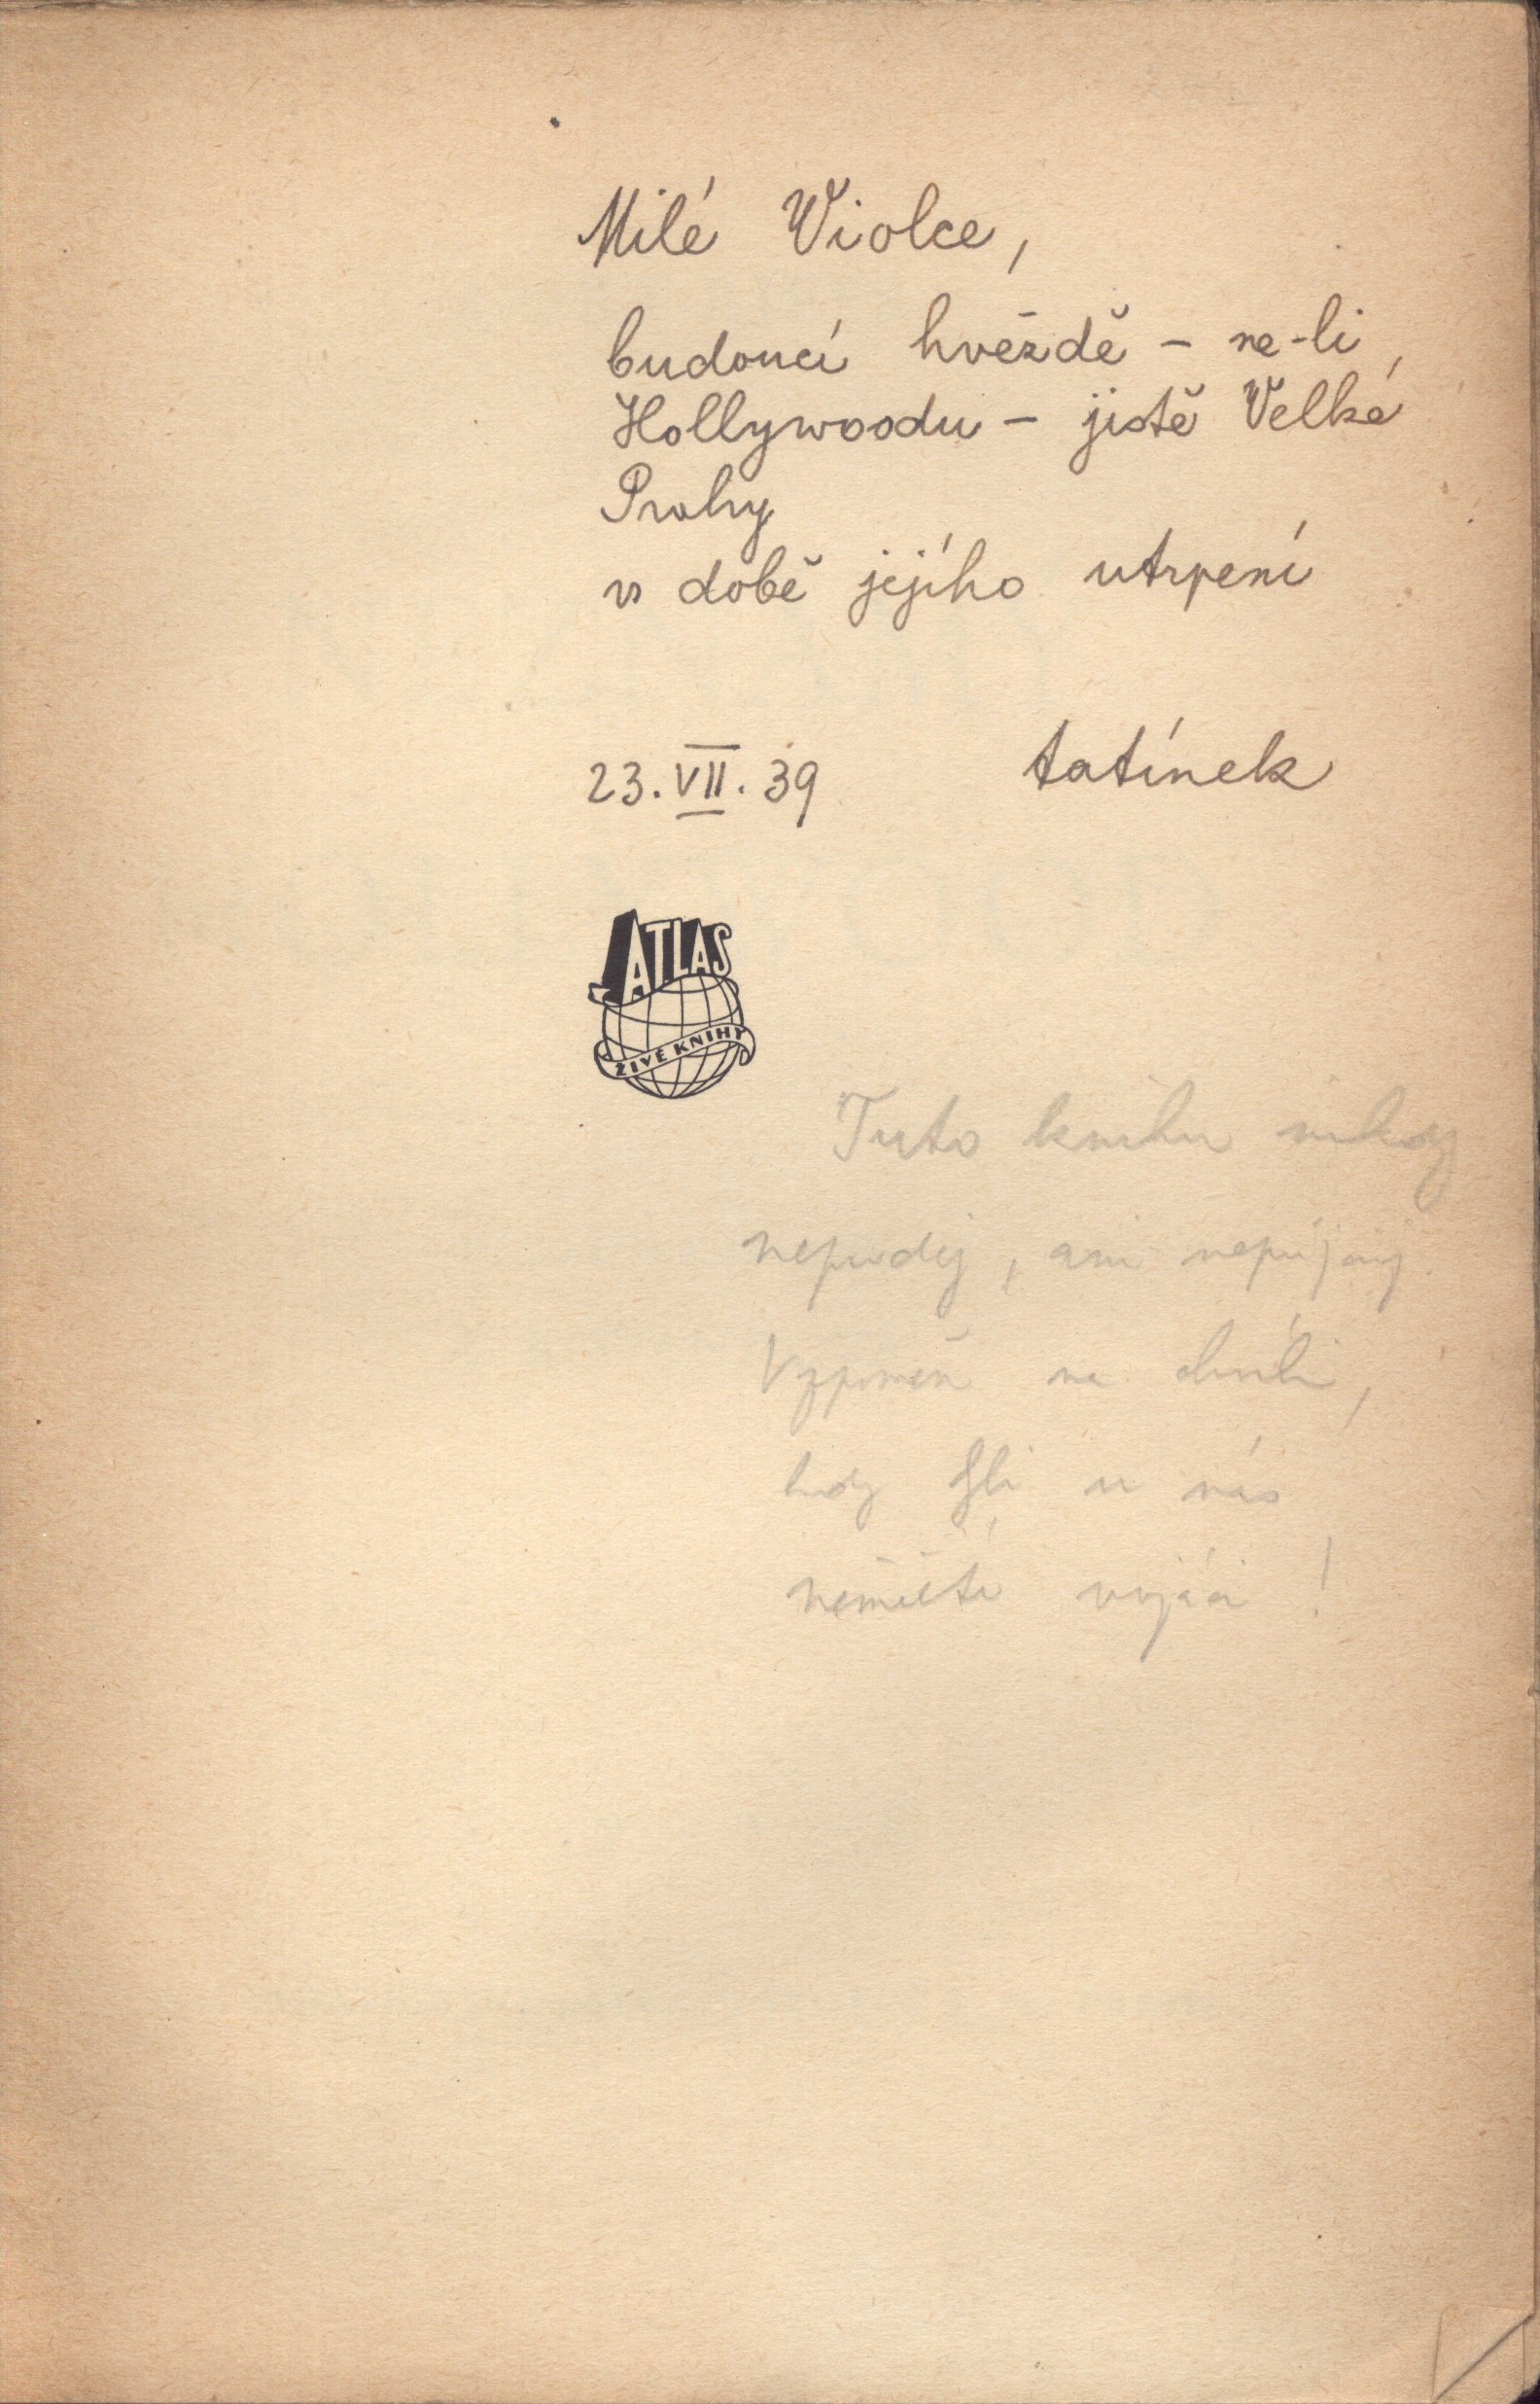 Milé Violce,
budoucí hvězdě - ne-li
Hollywoodu - jistě Velké
Prahy
v době jejího utrpení
23. VII. 39 tatínek
ATLAS
ŽIVÉ KNIHY
Tuto knihu nikdy
neprodej, ani nepůjčuj
Vzpomeň na chvíli,
kdy šli u nás
němečtí vojáci!